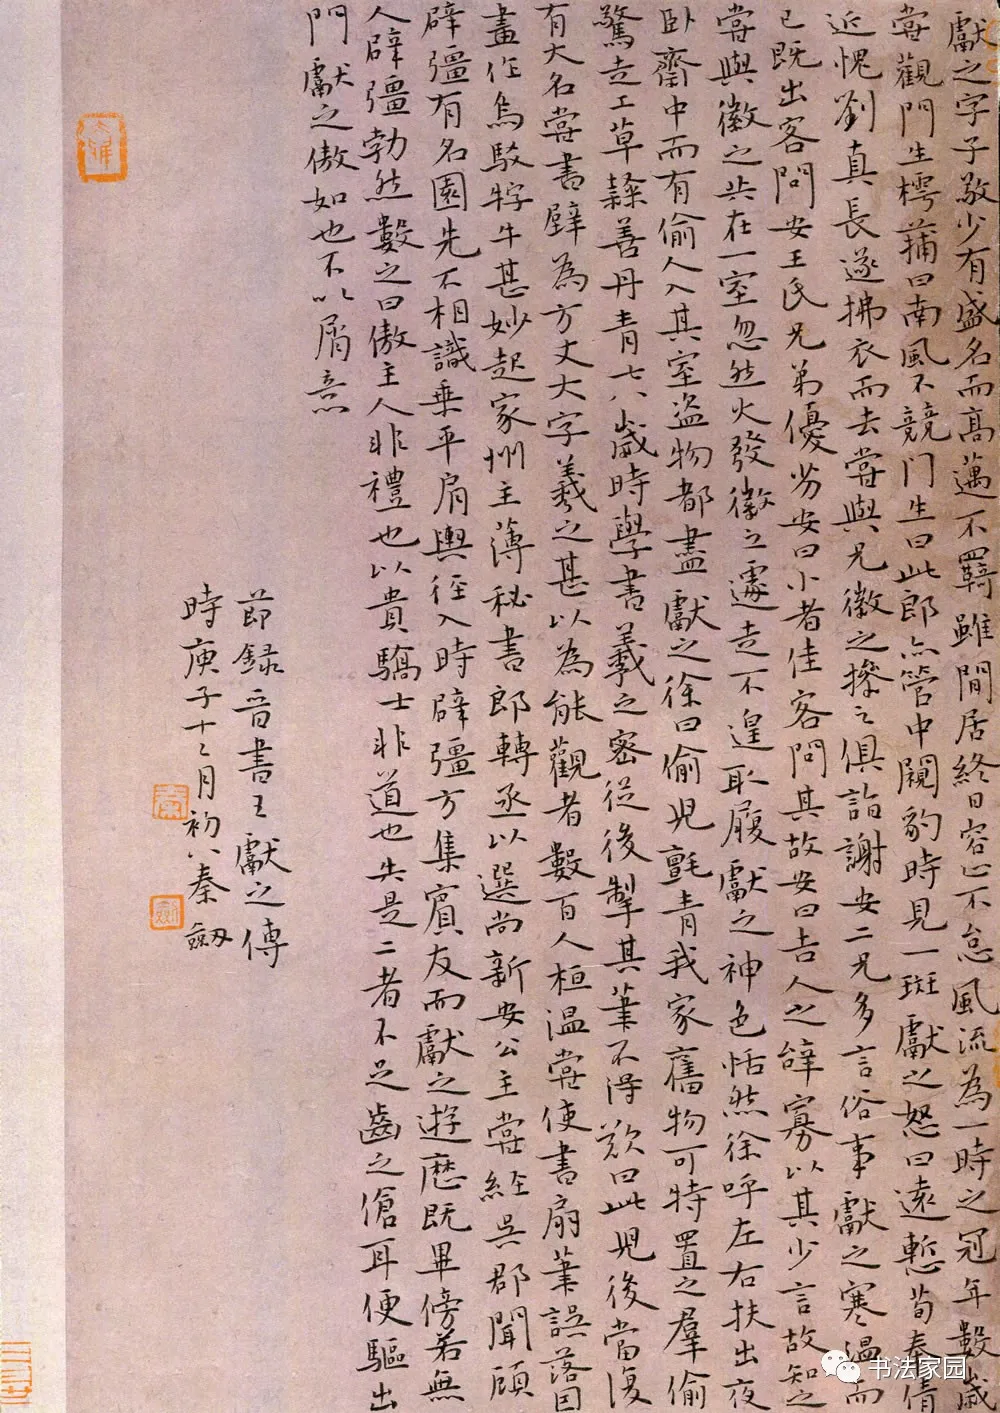 獻之字子敬少有盛名而高邁不羈雖閒居終日容止不怠風流為一時之冠年數歲
嘗觀門生樗蒱曰南風不競門生曰此郎亦管中闚豹時見一斑獻之怒曰遠慙荀奉倩
近愧劉真長遂拂衣而去嘗與兄徽之操之俱詣謝安二兄多言俗事獻之寒溫而
已既出客問安王氏兄弟優劣安曰小者佳客問其故安曰吉人之辭寡以其少言故知之
嘗與徽之共在一室忽然火發徽之遽走不遑取履獻之神色恬然徐呼左右扶出夜
臥齋中而有偷人入其室盜物都盡獻之徐曰偷兒氈青我家舊物可特置之羣偷
驚走工草隸善丹青七八歲時學書羲之密從後掣其筆不得歎曰此兒後當復
有大名嘗書壁為方丈大字羲之甚以為能觀者數百人桓溫嘗使書扇筆誤落因
畫作烏駁牸牛甚妙起家州主薄秘書郎轉丞以選尚新安公主嘗經吳郡聞顧
辟彊有名園先不相識乘平肩輿徑入時辟彊方集賓友而獻之遊歷既畢傍若無
人辟彊勃然數之曰傲主人非禮也以貴驕士非道也失是二者不足齒之傖耳便驅出
門獻之傲如也不以屑意
節錄晉書王獻之傳
時庚子十二月初八秦劒
书法家园